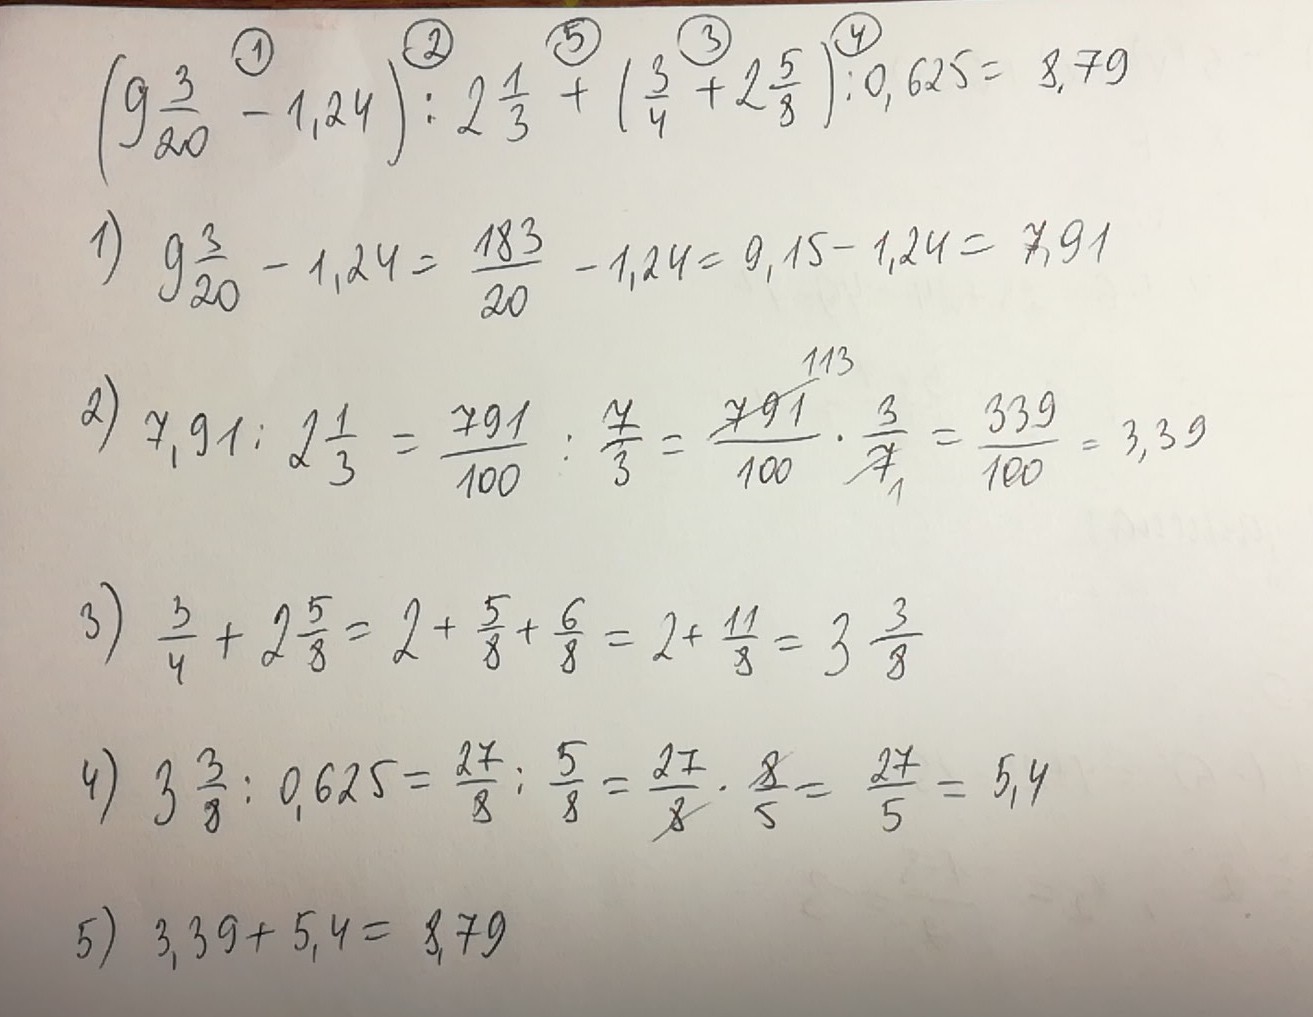 ① ② ⑤ ③ ④
(9 3/20 - 1,24) : 2 1/3 + (3/4 + 2 5/8) : 0,625 = 8,79
1) 9 3/20 - 1,24 = 183/20 - 1,24 = 9,15 - 1,24 = 7,91
113
2) 7,91 : 2 1/3 = 791/100 : 7/3 = 791/100 · 3/7 = 339/100 = 3,39
1
3) 3/4 + 2 5/8 = 2 + 5/8 + 6/8 = 2 + 11/8 = 3 3/8
4) 3 3/8 : 0,625 = 27/8 : 5/8 = 27/8 · 8/5 = 27/5 = 5,4
5) 3,39 + 5,4 = 8,79